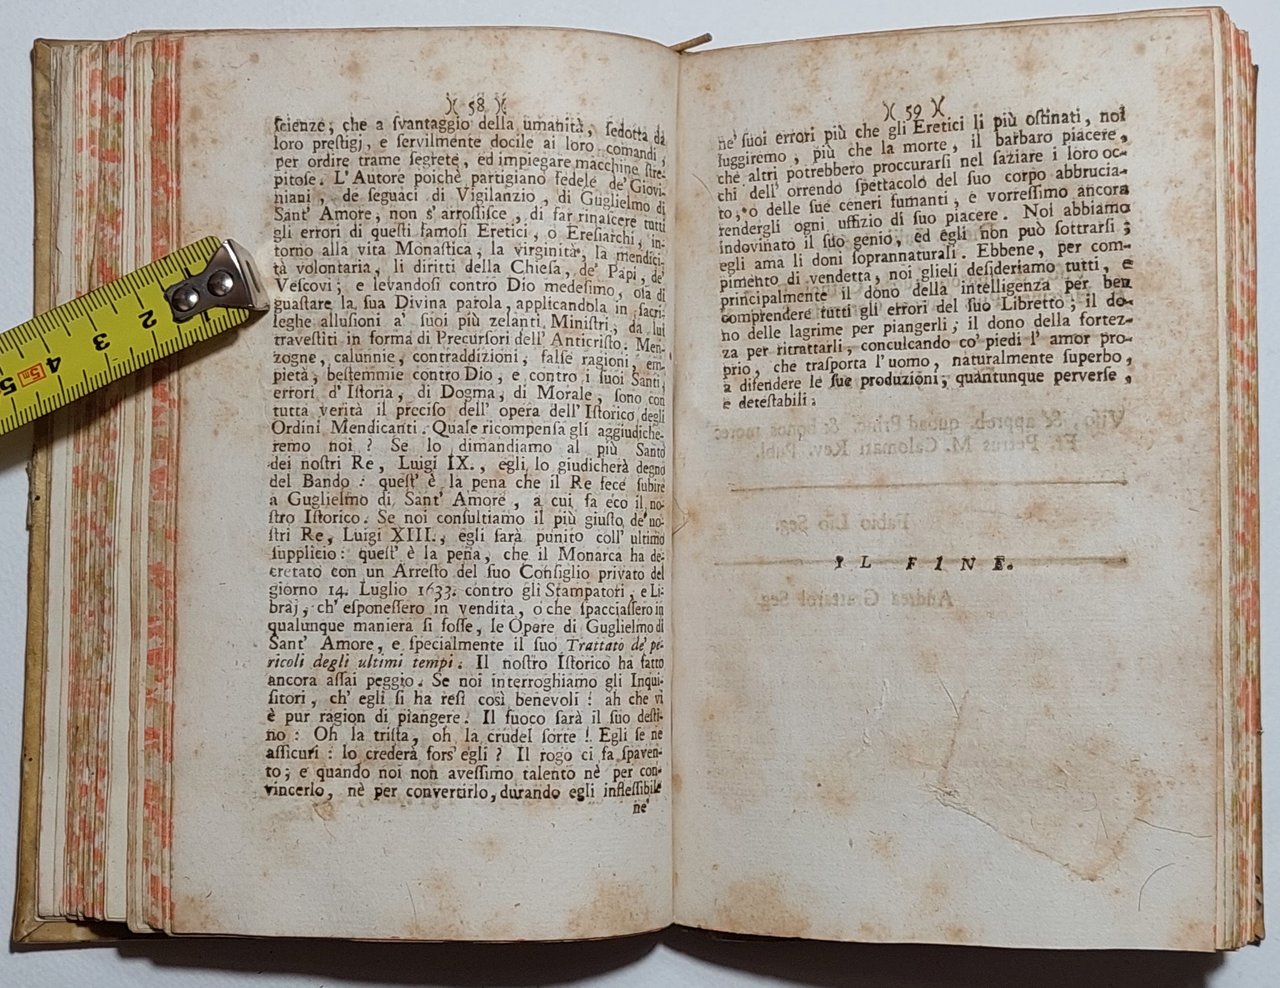 )( 58 )(
ſcienze, che a ſvantaggio della umanità, ſedotta da
loro preſtigj, e ſervilmente docile ai loro comandi,
per ordire trame ſegrete, ed impiegare macchine ſtre-
pitoſe. L'Autore poichè partigiano fedele de' Giovi-
niani, de ſeguaci di Vigilanzio, di Guglielmo di
Sant' Amore, non s' arroſſiſce, di far rinaſcere tutti
gli errori di queſti famoſi Eretici, o Ereſiarchi, in-
torno alla vita Monaſtica, la virginità, la mendici-
tà volontaria, li diritti della Chieſa, de' Papi, de'
Veſcovi; e levandoſi contro Dio medeſimo, oſa di
guaſtare la ſua Divina parola, applicandola in ſacri-
leghe alluſioni a' ſuoi più zelanti Miniſtri, da lui
traveſtiti in forma di Precurſori dell' Anticriſto. Men-
zogne, calunnie, contraddizioni, falſe ragioni, em-
pietà, beſtemmie contro Dio, e contro i ſuoi Santi,
errori d' Iſtoria, di Dogma, di Morale, ſono con
tutta verità il preciſo dell' opera dell' Iſtorico degli
Ordini Mendicanti. Quale ricompenſa gli aggiudiche-
remo noi? Se lo dimandiamo al più Santo
dei noſtri Re, Luigi IX., egli lo giudicherà degno
del Bando: queſt' è la pena che il Re fece ſubire
a Guglielmo di Sant' Amore, a cui fa eco il no-
ſtro Iſtorico. Se noi conſultiamo il più giuſto de' no-
ſtri Re, Luigi XIII., egli ſarà punito coll' ultimo
ſupplicio: queſt' è la pena, che il Monarca ha de-
cretato con un Arreſto del ſuo Conſiglio privato del
giorno 14. Luglio 1633. contro gli Stampatori, e Li-
braj, ch' eſponeſſero in vendita, o che ſpacciaſſero in
qualunque maniera ſi foſſe, le Opere di Guglielmo di
Sant' Amore, e ſpecialmente il ſuo Trattato de' pe-
ricoli degli ultimi tempi. Il noſtro Iſtorico ha fatto
ancora aſſai peggio. Se noi interroghiamo gli Inqui-
ſitori, ch' egli ſi ha reſi così benevoli: ah che vi
è pur ragion di piangere. Il fuoco ſarà il ſuo deſti-
no: Oh la triſta, oh la crudel ſorte! Egli ſe ne
aſſicuri: lo crederà fors' egli? Il rogo ci fa ſpaven-
to; e quando noi non aveſſimo talento nè per con-
vincerlo, nè per convertirlo, durando egli infleſſibile
ne'
)( 59 )(
ne' ſuoi errori più che gli Eretici li più oſtinati, noi
fuggiremo, più che la morte, il barbaro piacere,
che altri potrebbero proccurarſi nel ſaziare i loro oc-
chi dell' orrendo ſpettacolo del ſuo corpo abbrucia-
to, o delle ſue ceneri fumanti, e vorreſſimo ancora
rendergli ogni uffizio di ſuo piacere. Noi abbiamo
indovinato il ſuo genio, ed egli non può ſottrarſi;
egli ama li doni ſoprannaturali. Ebbene, per com-
pimento di vendetta, noi glieli deſideriamo tutti, e
principalmente il dono della intelligenza per ben
comprendere tutti gli errori del ſuo Libretto; il do-
no delle lagrime per piangerli; il dono della fortez-
za per ritrattarli, conculcando co' piedi l' amor pro-
prio, che traſporta l'uomo, naturalmente ſuperbo,
a difendere le ſue produzioni, quantunque perverſe,
e deteſtabili.
IL FINE.
2
3
4
5
5m